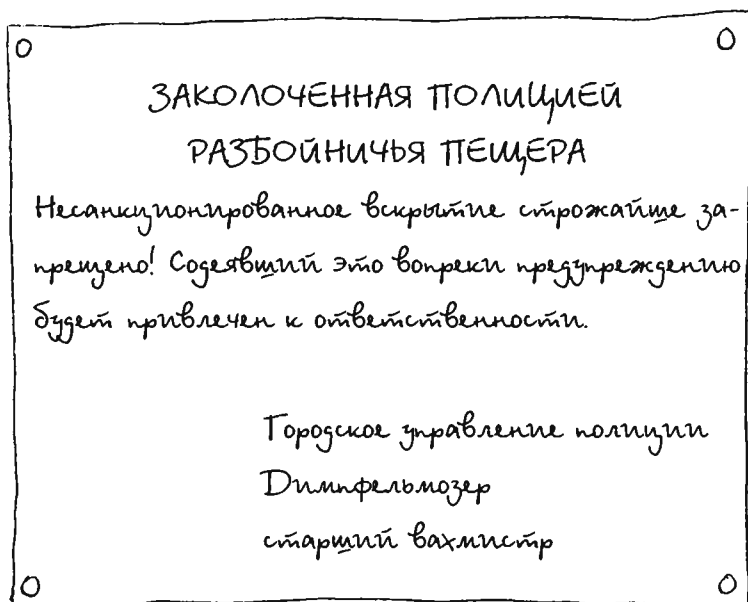 ЗАКОЛОЧЕННАЯ ПОЛИЦИЕЙ
РАЗБОЙНИЧЬЯ ПЕЩЕРА
Несанкционированное вскрытие строжайше за-
прещено! Содеявший это вопреки предупреждению
будет привлечен к ответственности.
Городское управление полиции
Димпфельмозер
старший вахмистр